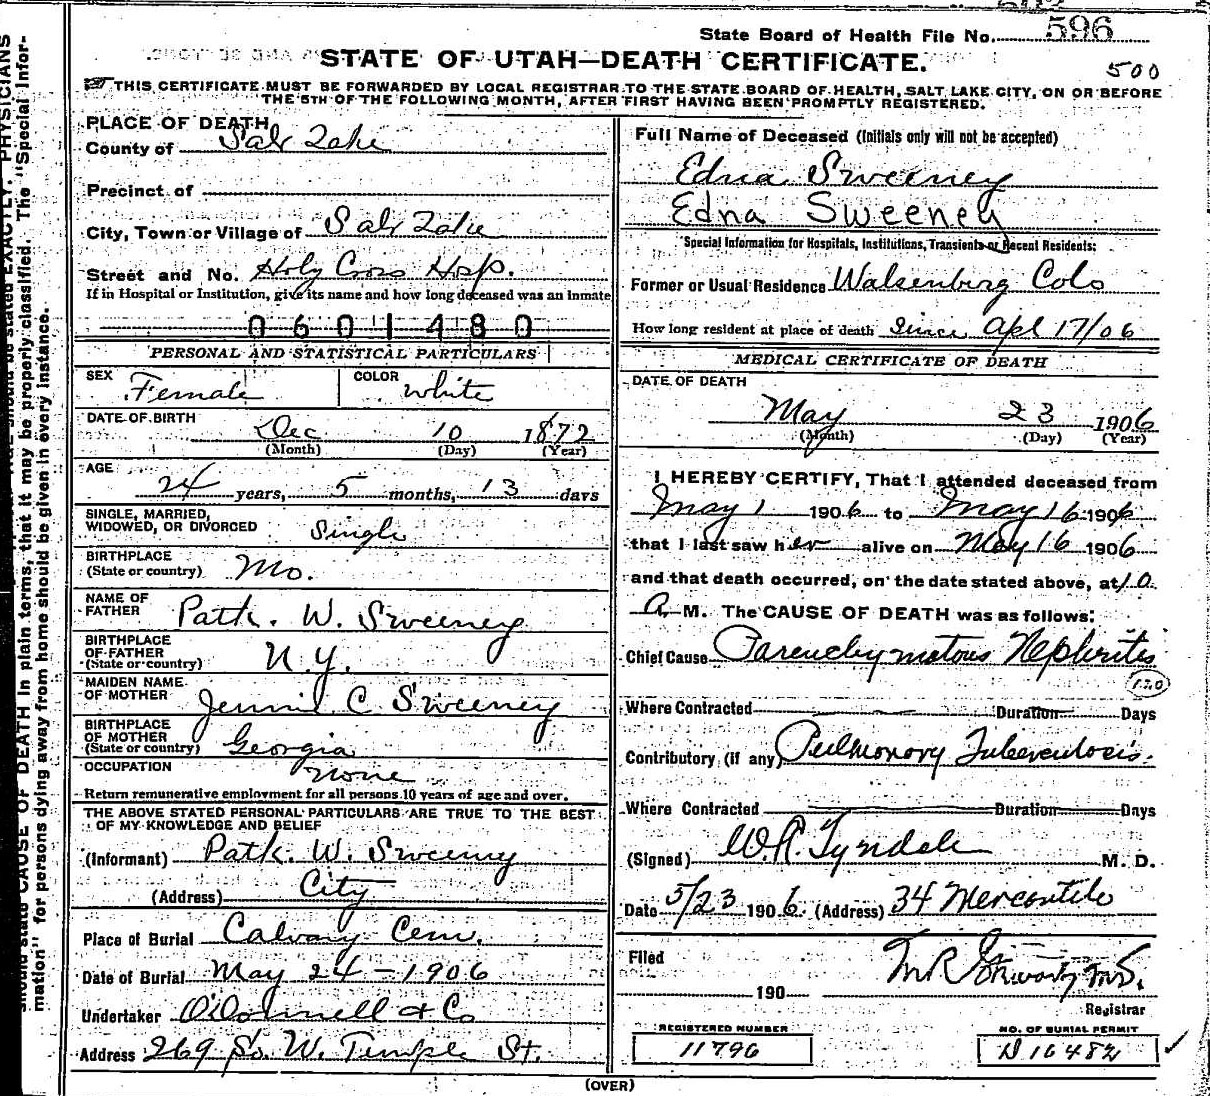 State Board of Health File No. 596
STATE OF UTAH—DEATH CERTIFICATE.
500
THIS CERTIFICATE MUST BE FORWARDED BY LOCAL REGISTRAR TO THE STATE BOARD OF HEALTH, SALT LAKE CITY, ON OR BEFORE
THE 5TH OF THE FOLLOWING MONTH, AFTER FIRST HAVING BEEN PROMPTLY REGISTERED.
PLACE OF DEATH
County of Salt Lake
Precinct of
City, Town or Village of Salt Lake
Street and No. Holy Cross Hosp.
If in Hospital or Institution, give its name and how long deceased was an inmate
0601480
PERSONAL AND STATISTICAL PARTICULARS
SEX Female COLOR White
DATE OF BIRTH
Dec 10 1872
(Month) (Day) (Year)
AGE
24 years, 5 months, 13 days
SINGLE, MARRIED,
WIDOWED, OR DIVORCED Single
BIRTHPLACE
(State or country) Mo.
NAME OF
FATHER Patk. W. Sweeney
BIRTHPLACE
OF FATHER
(State or country) N.Y.
MAIDEN NAME
OF MOTHER Jennie C Sweeney
BIRTHPLACE
OF MOTHER
(State or country) Georgia
OCCUPATION None
Return remunerative employment for all persons 10 years of age and over.
THE ABOVE STATED PERSONAL PARTICULARS ARE TRUE TO THE BEST
OF MY KNOWLEDGE AND BELIEF
(Informant) Patk. W. Sweeney
(Address) City
Place of Burial Calvary Cem.
Date of Burial May 24-1906
Undertaker O'Donnell & Co
Address 269 So. W. Temple St.
Full Name of Deceased (Initials only will not be accepted)
Edna Sweeney
Edna Sweeney
Special Information for Hospitals, Institutions, Transients or Recent Residents:
Former or Usual Residence Walsenburg Colo
How long resident at place of death Since Apl 17/06
MEDICAL CERTIFICATE OF DEATH
DATE OF DEATH
May 23 1906
(Month) (Day) (Year)
I HEREBY CERTIFY, That I attended deceased from
May 1 1906 to May 16 1906
that I last saw her alive on May 16 1906
and that death occurred, on the date stated above, at 10
A. M. The CAUSE OF DEATH was as follows:
Chief Cause Parenchymatous Nephrites
120
Where Contracted Duration Days
Contributory (if any) Pulmonary Tuberculosis.
Where Contracted Duration Days
(Signed) W.R. Tyndale M. D.
Date 5/23 1906. (Address) 34 Mercantile
Filed
190
Registrar
REGISTERED NUMBER
11796
NO. OF BURIAL PERMIT
16482
(OVER)
PHYSICIANS
should state CAUSE OF DEATH in plain terms, that it may be properly classified. The "Special Infor-
mation" for persons dying away from home should be given in every instance.